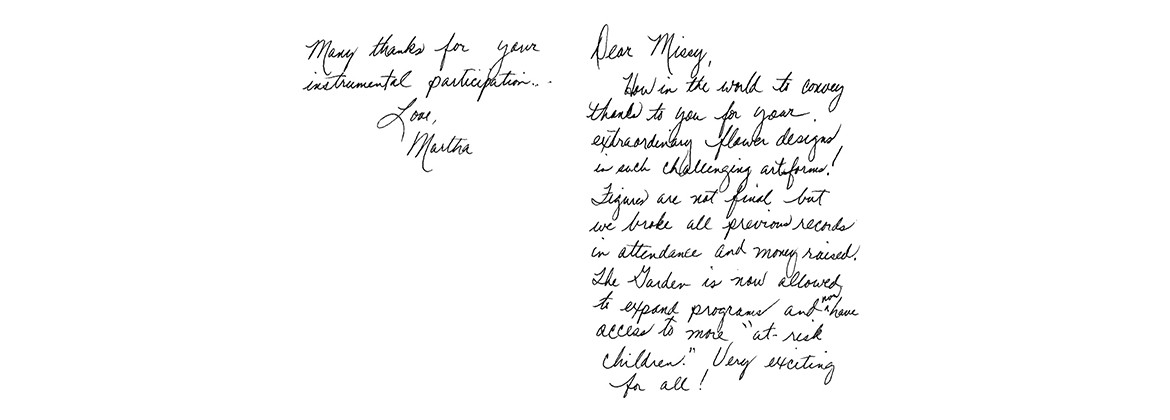 Many thanks for your
instrumental participation...
Love,
Martha
Dear Missy,
How in the world to convey
thanks to you for your
extraordinary flower designs
in such challenging artforms!
Figures are not final but
we broke all previous records
in attendance and money raised.
The Garden is now allowed
to expand programs and now have
access to more "at-risk
children." Very exciting
for all!